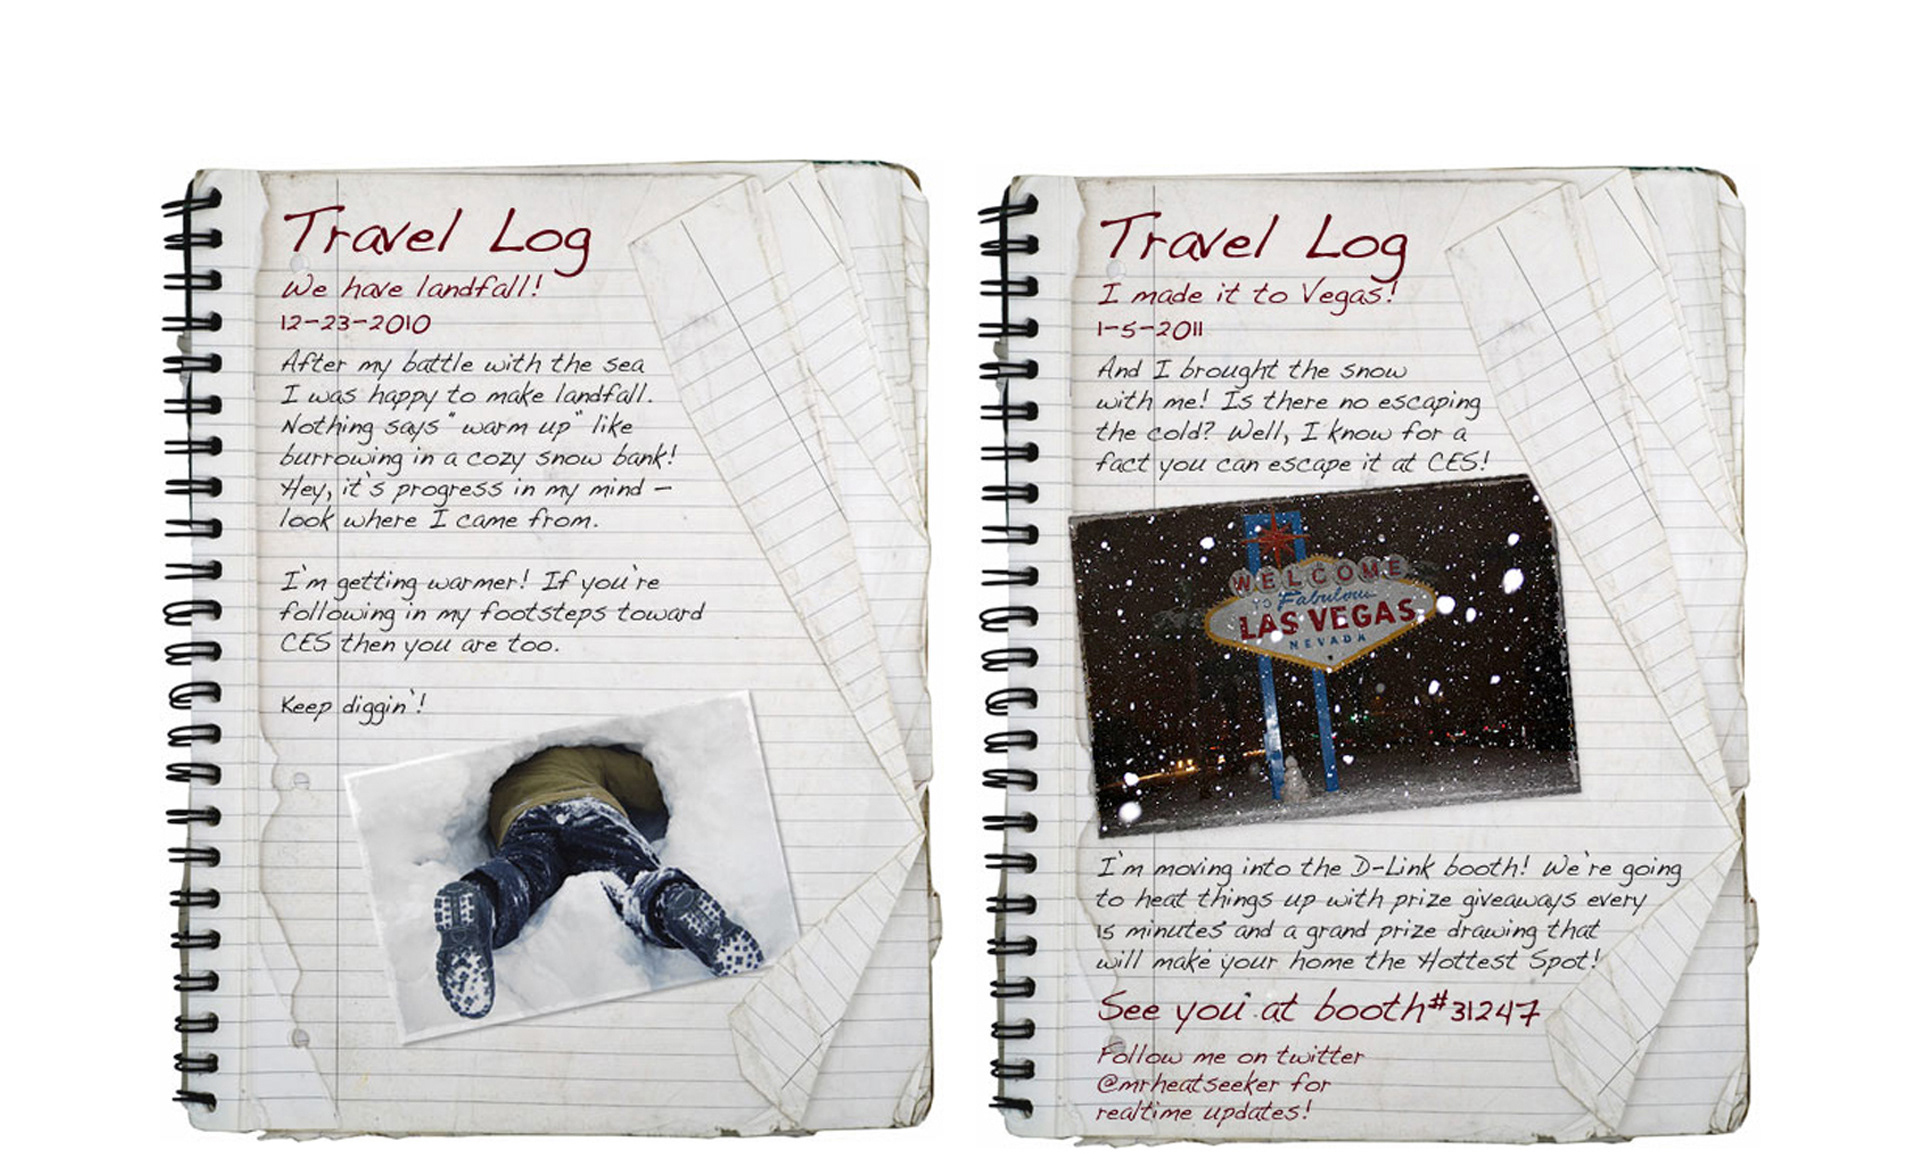 Travel Log
We have landfall!
12-23-2010
After my battle with the sea
I was happy to make landfall.
Nothing says "warm up" like
burrowing in a cozy snow bank!
Hey, it's progress in my mind –
look where I came from.
I'm getting warmer! If you're
following in my footsteps toward
CES then you are too.
Keep diggin'!
Travel Log
I made it to Vegas!
1-5-2011
And I brought the snow
with me! Is there no escaping
the cold? Well, I know for a
fact you can escape it at CES!
WELCOME
TO Fabulous
LAS VEGAS
NEVADA
I'm moving into the D-Link booth! We're going
to heat things up with prize giveaways every
15 minutes and a grand prize drawing that
will make your home the Hottest Spot!
See you at booth#31247
Follow me on twitter
@mrheatseeker for
realtime updates!